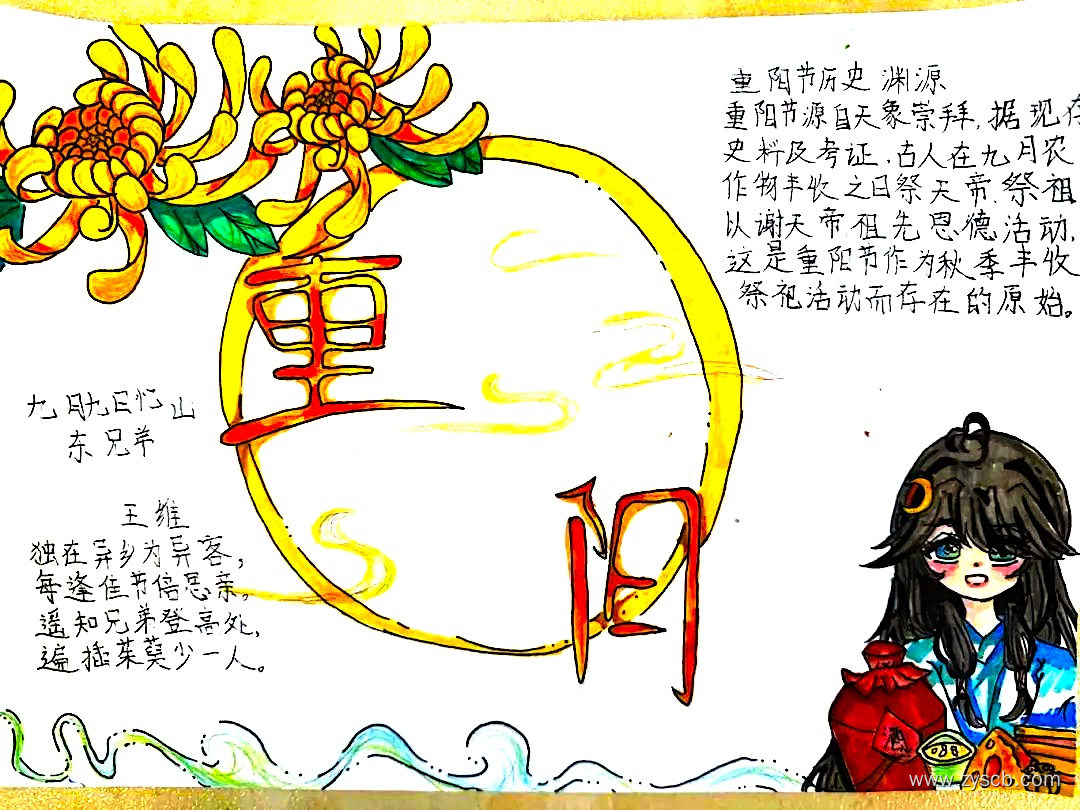 重阳节历史渊源
重阳节源自天象崇拜,据现存
史料及考证,古人在九月农
作物丰收之日祭天帝、祭祖
以谢天帝祖先恩德活动,
这是重阳节作为秋季丰收
祭祀活动而存在的原始。
重
阳
九月九日忆山
东兄弟
王维
独在异乡为异客,
每逢佳节倍思亲。
遥知兄弟登高处,
遍插茱萸少一人。
酒
www.zyscb.com